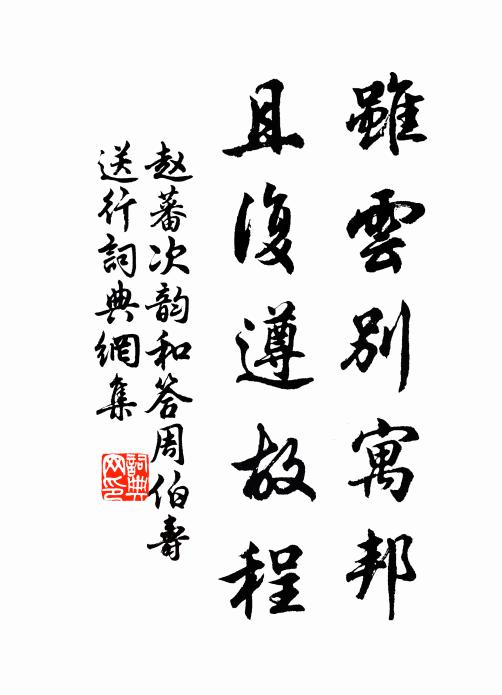 雖雲別寓邦
且復遵故程
赵蕃次韵和答周伯壽
送行詞典網集
詞典
网印